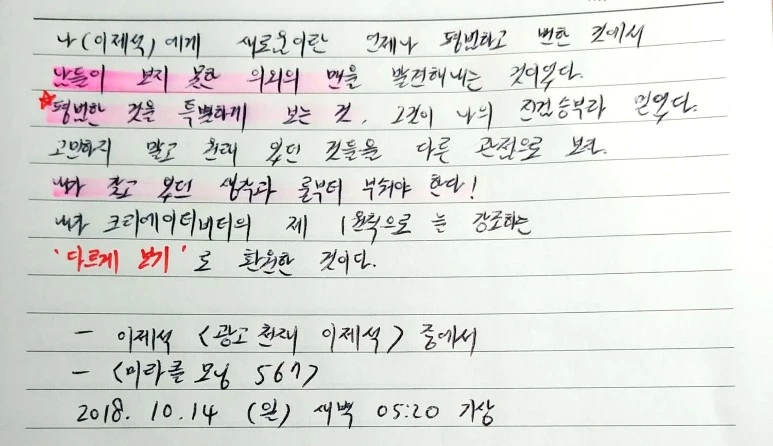 나(이제석)에게 새로움이란 언제나 평범하고 뻔한 것에서
남들이 보지 못한 의외의 면을 발견해내는 것이었다.
★평범한 것을 특별하게 보는 것, 그것이 나의 진검승부라 믿었다.
고민하지 말고 원래 있던 것들을 다른 관점으로 보라.
내가 갖고 있던 생각과 룰부터 부숴야 한다!
내가 크리에이티비티의 제 1원칙으로 늘 강조하는
'다르게 보기'로 환원한 것이다.
- 이제석 <광고 천재 이제석> 중에서
- <미라클 모닝 567>
2018. 10. 14 (일) 새벽 05:20 기상